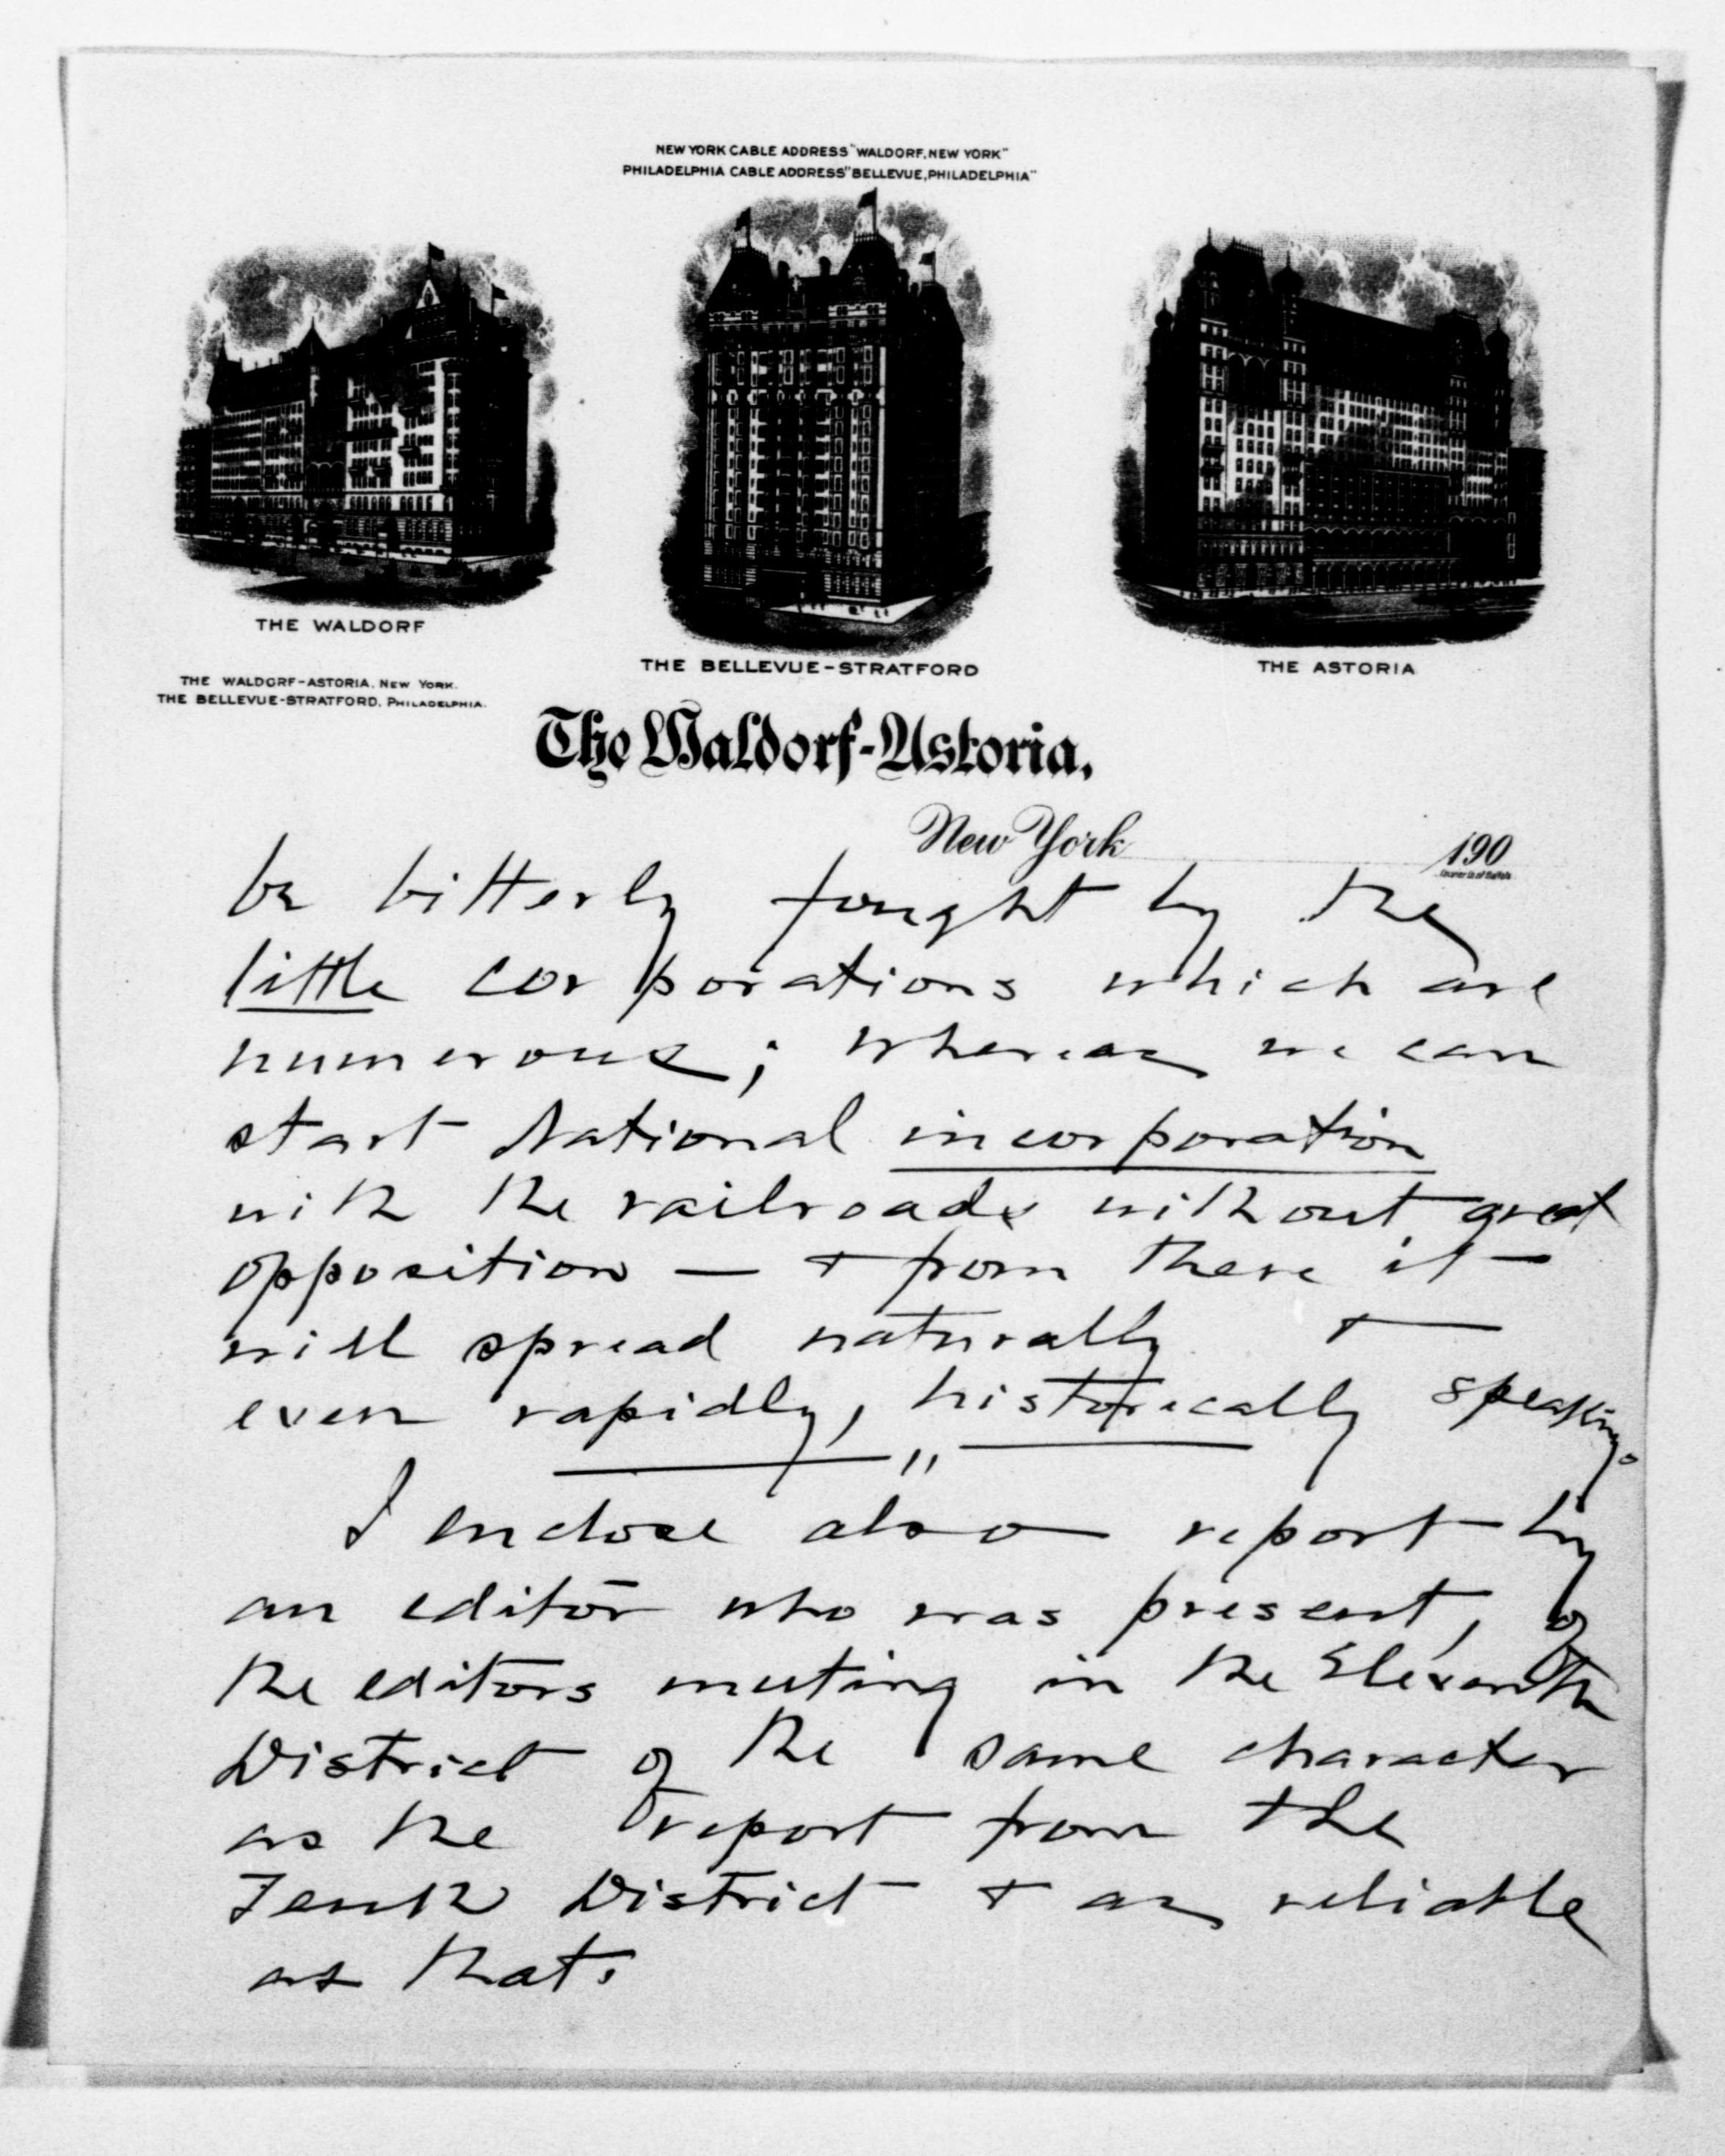 NEW YORK CABLE ADDRESS "WALDORF, NEW YORK"
PHILADELPHIA CABLE ADDRESS "BELLEVUE, PHILADELPHIA"
THE WALDORF
THE BELLEVUE-STRATFORD
THE ASTORIA
THE WALDORF-ASTORIA, NEW YORK.
THE BELLEVUE-STRATFORD, PHILADELPHIA.
The Waldorf-Astoria.
New York 190
be bitterly fought by the
little corporations which are
numerous; whereas we can
start National incorporation
with the railroads without great
opposition — & from there it
will spread naturally &
even rapidly, historically speaking.
I enclose also report by
an editor who was present, of
the editors meeting in the Eleventh
District of the same character
as the report from the
Tenth District & as reliable
as that.